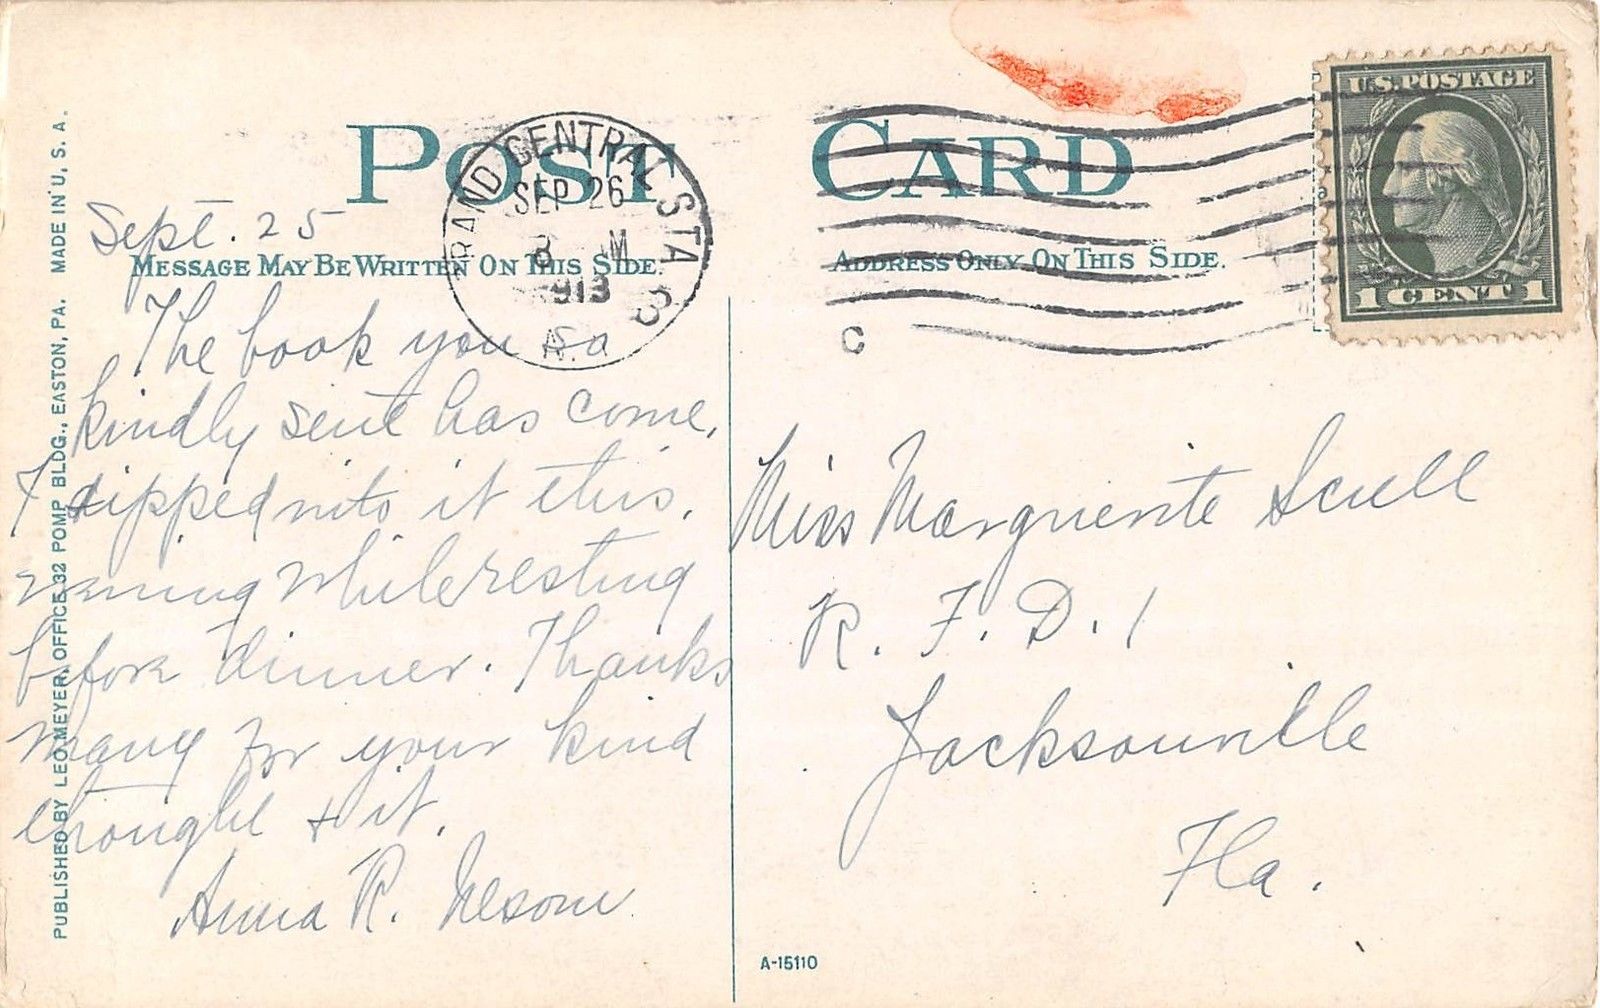 POST CARD
GRAND CENTRAL STA
SEP 26
8 M
1913
N.Y.
3
U.S. POSTAGE
1 CENT 1
C
MESSAGE MAY BE WRITTEN ON THIS SIDE.
ADDRESS ONLY ON THIS SIDE.
Sept. 25
The book you so
kindly sent has come.
I dipped into it this
evening while resting
before dinner. Thanks
many for your kind
thought & it.
Anna R.
Miss Marguerite Scull
R. F. D. 1
Jacksonville
Fla.
PUBLISHED BY LEO MEYER, OFFICE 32 POMP BLDG., EASTON, PA. MADE IN U. S. A.
A-15110